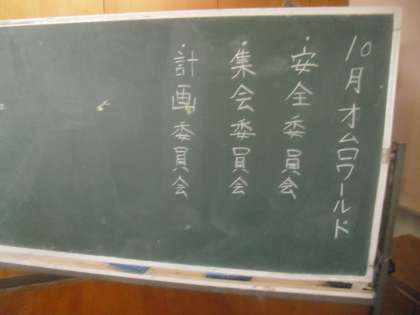 10月オムロワールド
・安全委員会
・集会委員会
・計画委員会